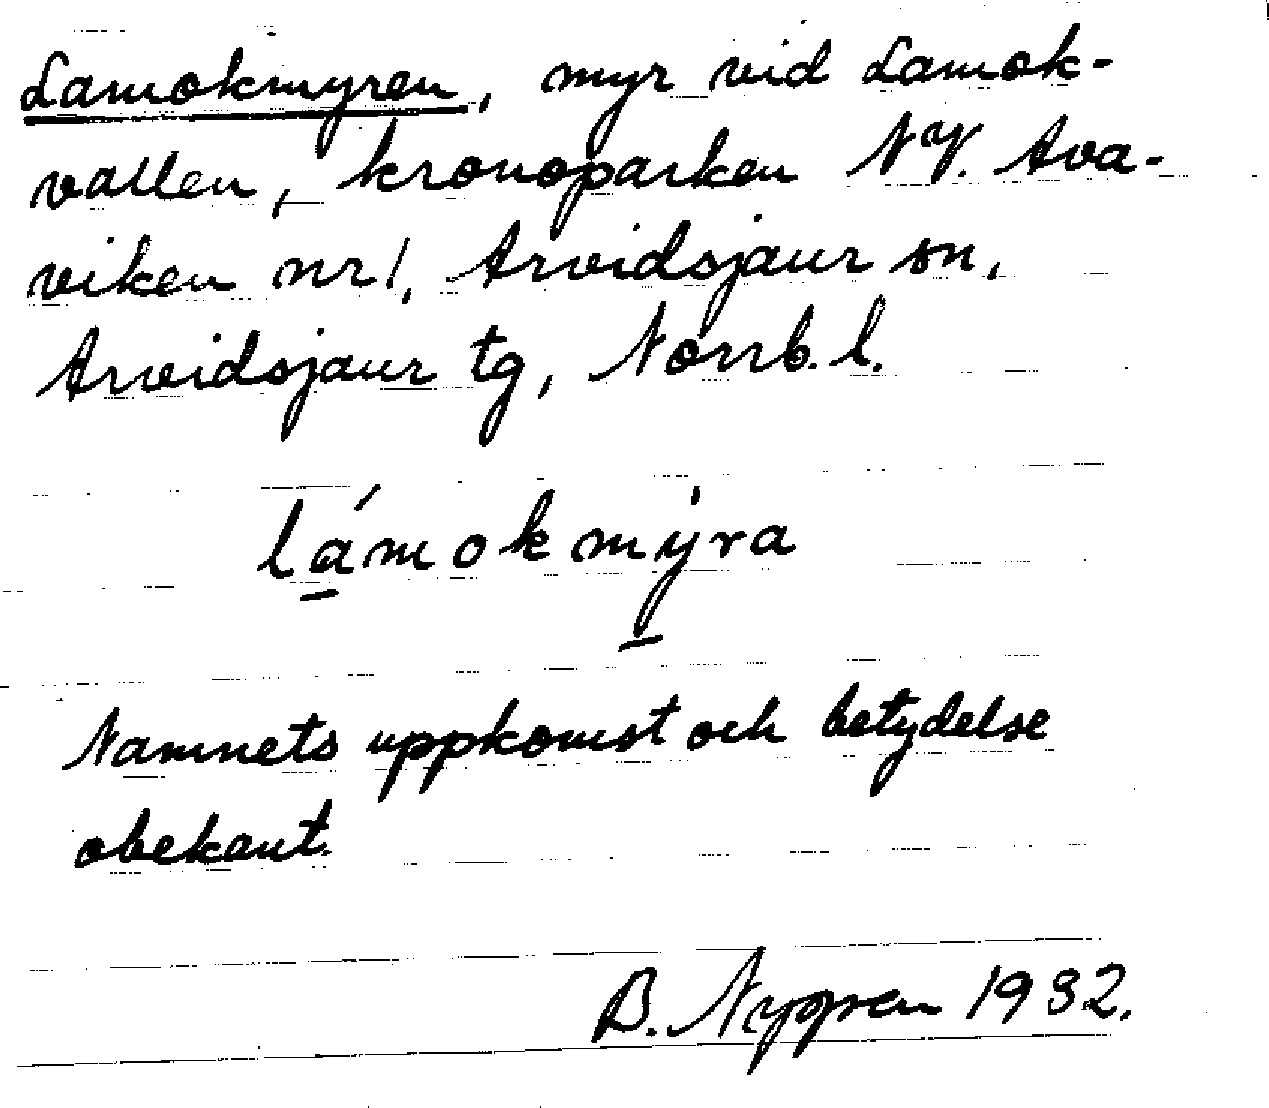 Lamokmyren, myr vid Lamok-
vallen, kronoparken NV. Ava-
viken nr 1, Arvidsjaur sn,
Arvidsjaur tg, Norrb. l.
lámokmýra
Namnets uppkomst och betydelse
obekant.
B. Nygren 1932.